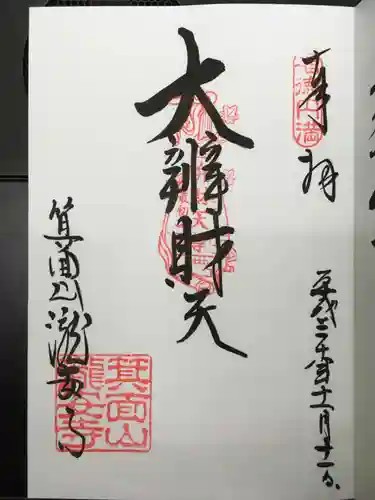 奉拝
平成三十年十一月十一日
大辨財天
箕面山瀧安寺
箕面山
瀧安寺